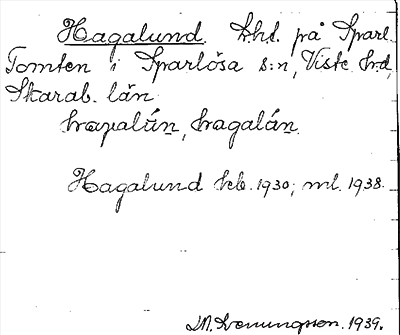 Hagalund. Lht. på Sparl.
Tomten i Sparlösa s:n, Viste hd,
Skarab. län
hagalún, hagalán.
Hagalund kb. 1930; ml. 1938.
D.N. Svenungsson. 1939.